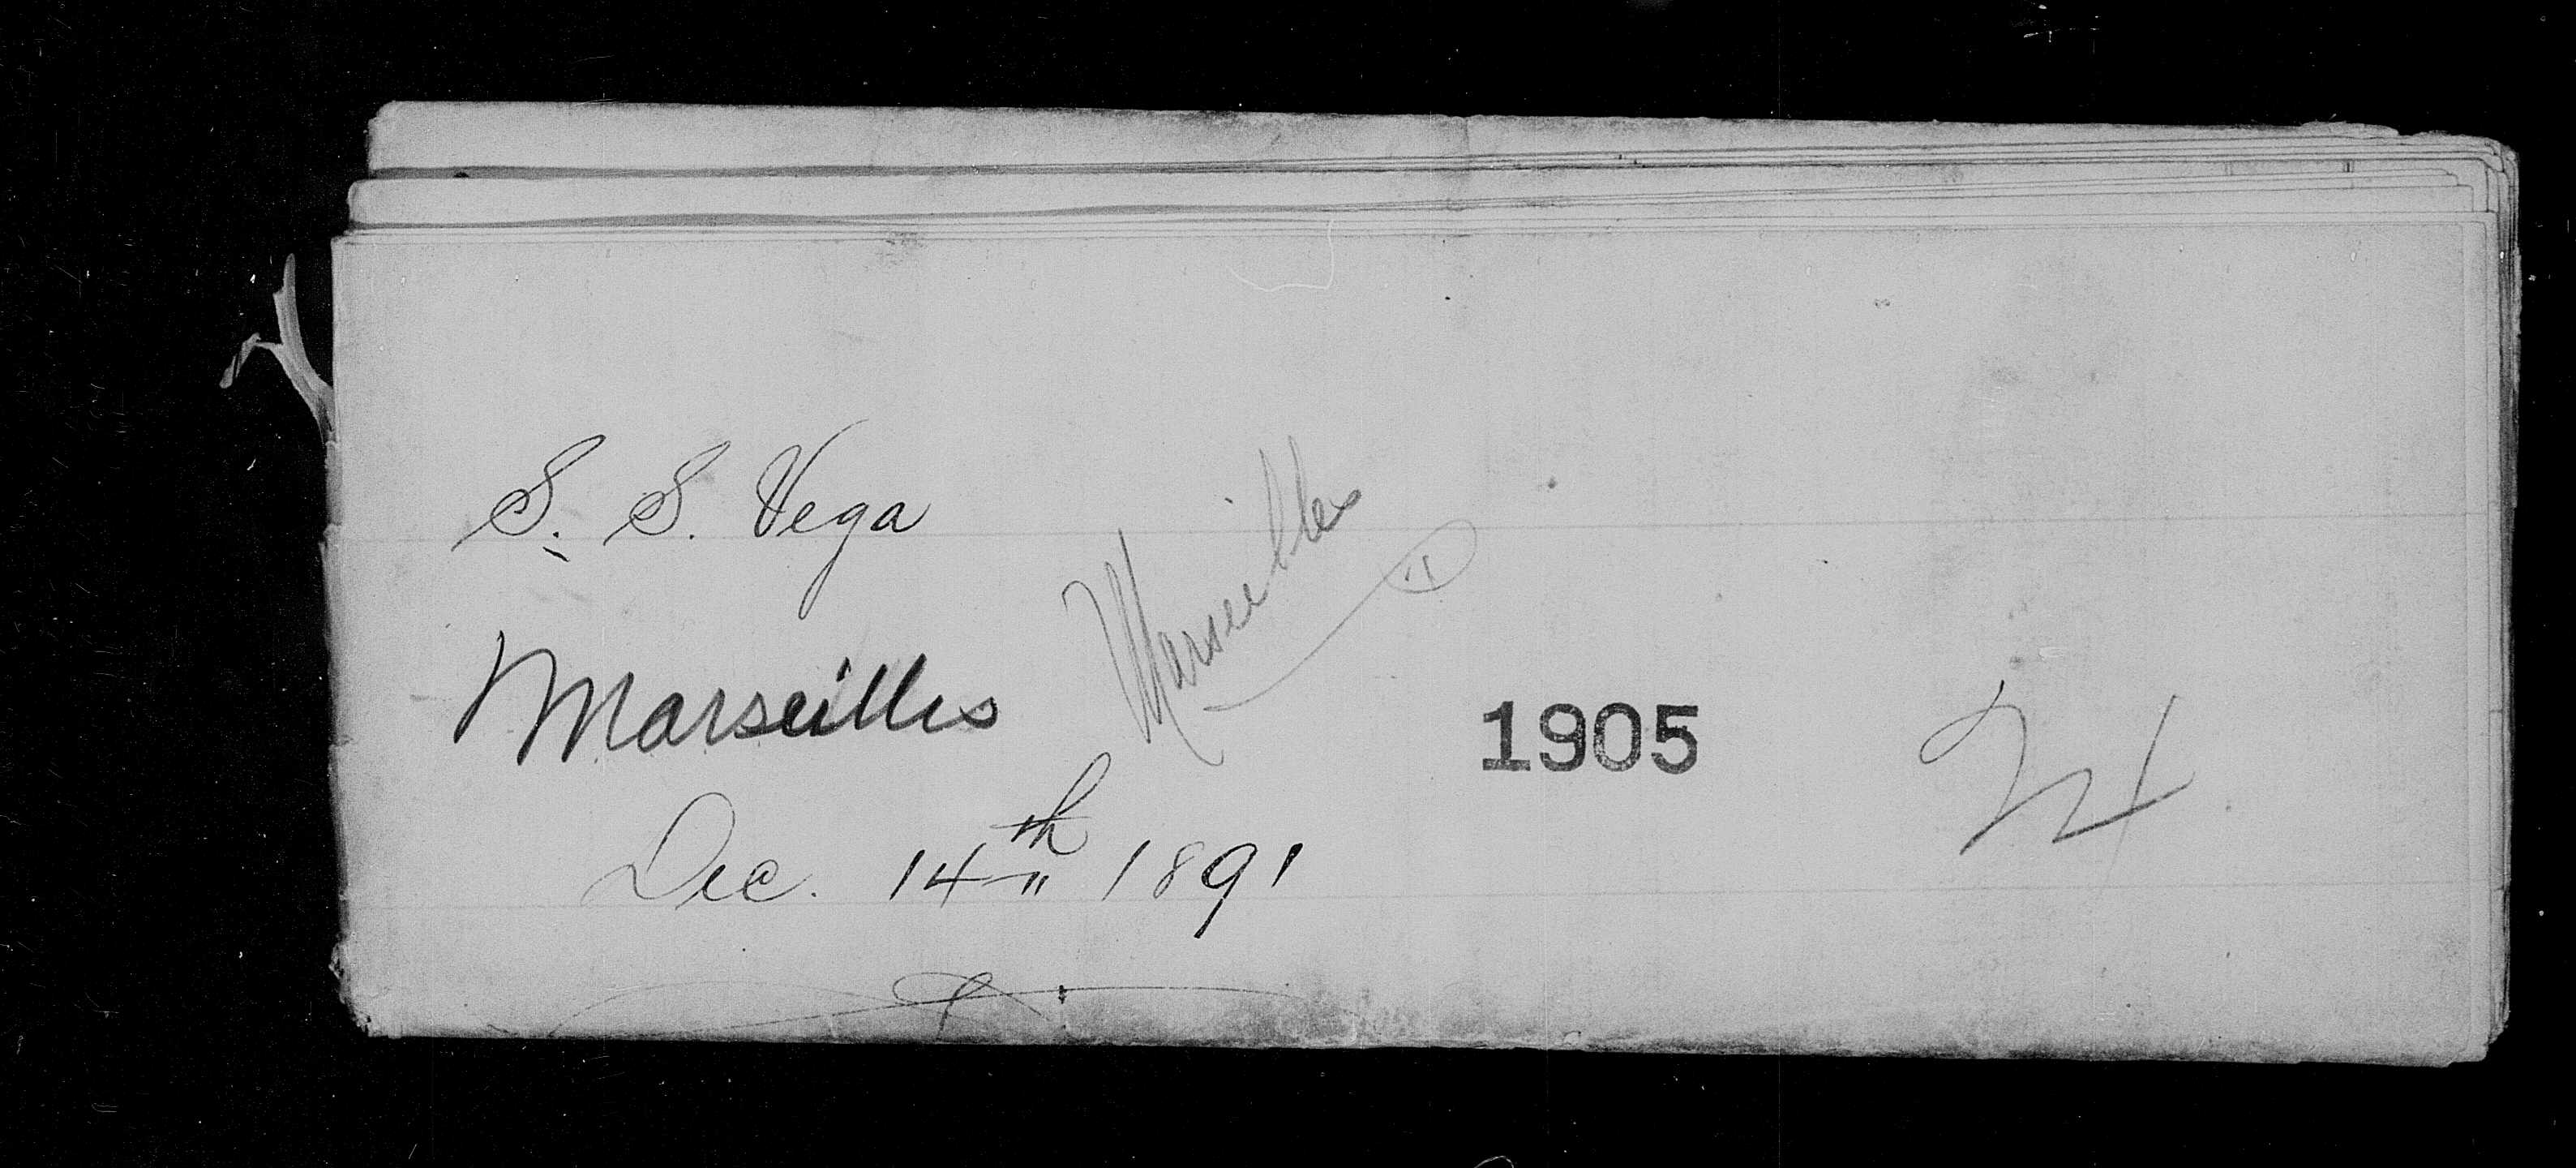 S. S. Vega
Marseilles
Marseilles
11
1905
Dec. 14th 1891